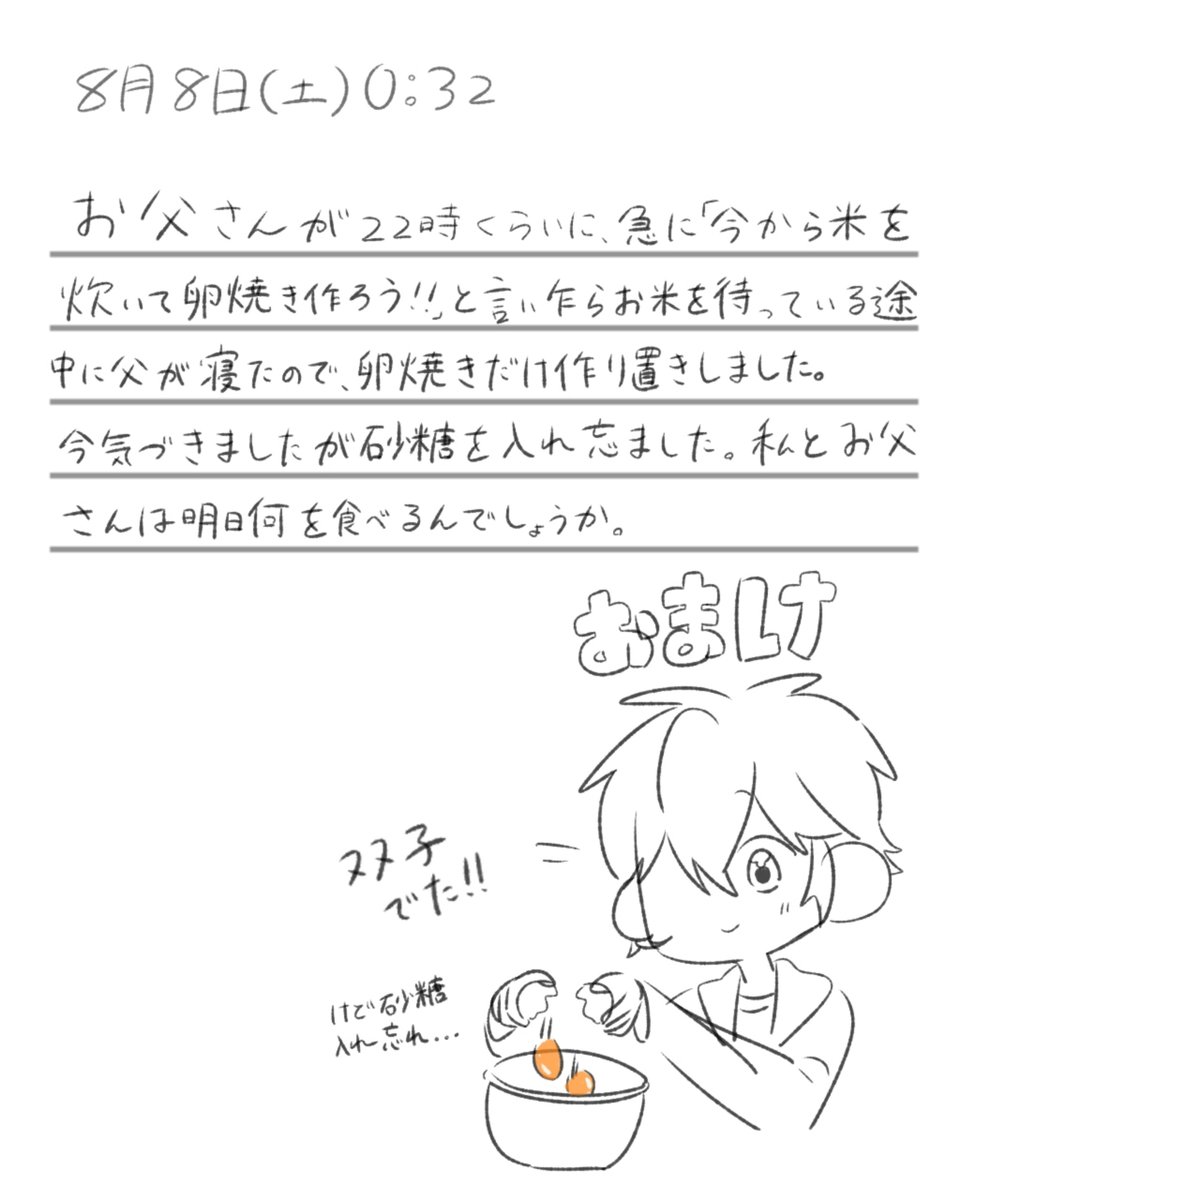 8月8日(土)0:32
お父さんが22時くらいに、急に「今から米を
炊いて卵焼き作ろう!!」と言い乍らお米を待っている途
中に父が寝たので、卵焼きだけ作り置きしました。
今気づきましたが砂糖を入れ忘ました。私とお父
さんは明日何を食べるんでしょうか。
おまけ
双子
でた!!
けど砂糖
入れ忘れ...